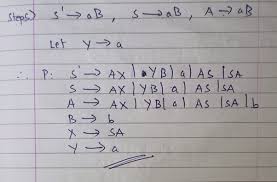 Step5) S' → aB, S → aB, A → aB
Let Y → a
∴ P: S' → AX | YB | a | AS | SA
S → AX | YB | a | AS | SA
A → AX | YB | a | AS | SA | b
B → b
X → SA
Y → a